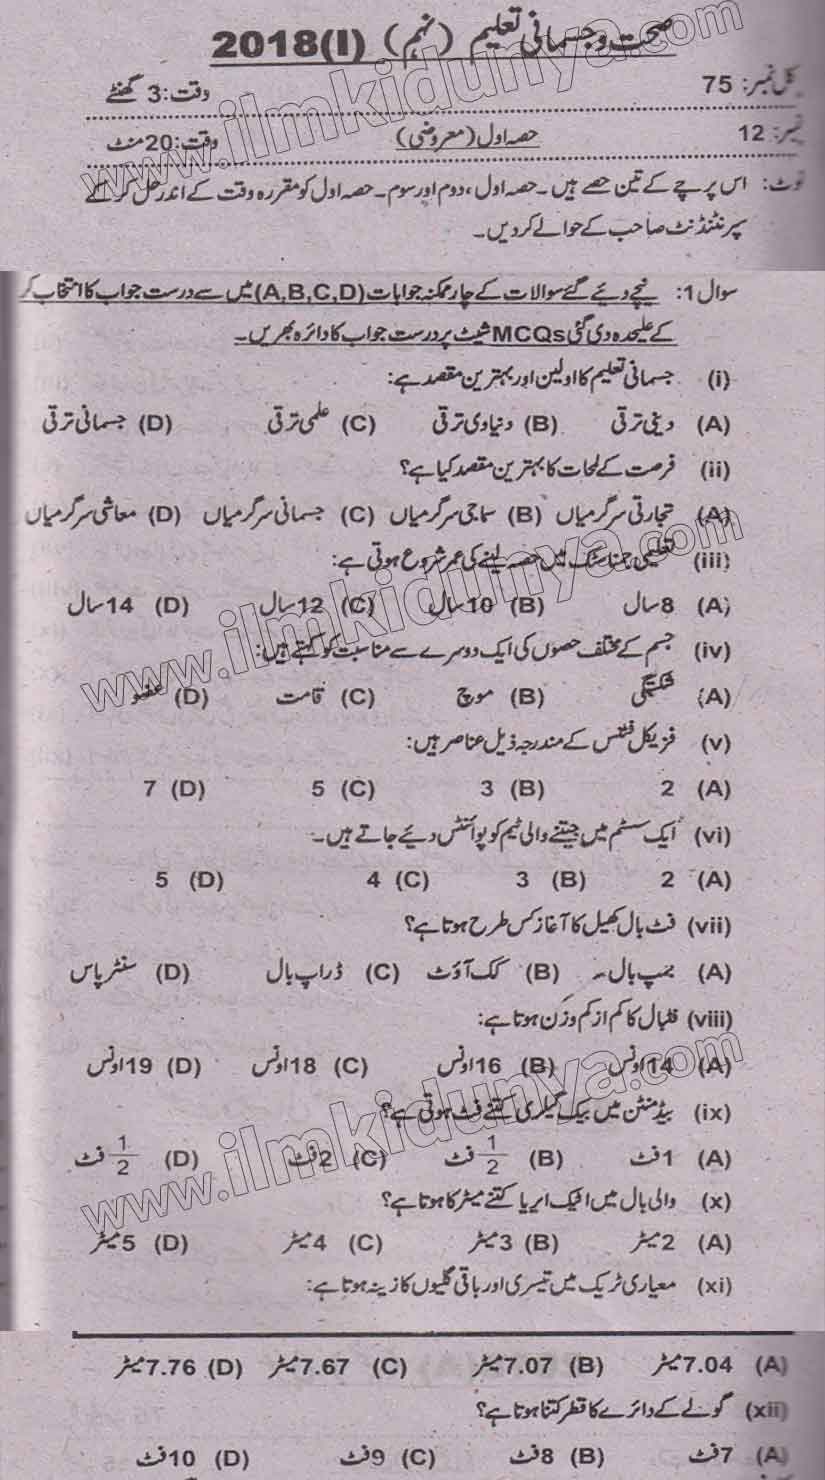 صحت و جسمانی تعلیم (نہم) 2018(I)
کل نمبر: 75 وقت: 3 گھنٹے
نمبر: 12 حصہ اول (معروضی) وقت: 20 منٹ
نوٹ: اس پرچے کے تین حصے ہیں۔ حصہ اول، دوم اور سوم۔ حصہ اول کو مقررہ وقت کے اندر حل کر کے
سپرنٹنڈنٹ صاحب کے حوالے کر دیں۔
سوال 1: نیچے دیئے گئے سوالات کے چار ممکنہ جوابات (A,B,C,D) میں سے درست جواب کا انتخاب کر
کے علیحدہ دی گئی MCQs شیٹ پر درست جواب کا دائرہ بھریں۔
(i) جسمانی تعلیم کا اولین اور بہترین مقصد ہے:
(A) دینی ترقی (B) دنیاوی ترقی (C) علمی ترقی (D) جسمانی ترقی
(ii) فرصت کے لمحات کا بہترین مقصد کیا ہے؟
(A) تجارتی سرگرمیاں (B) سماجی سرگرمیاں (C) جسمانی سرگرمیاں (D) معاشی سرگرمیاں
(iii) تعلیمی جمناسٹک میں حصہ لینے کی عمر شروع ہوتی ہے:
(A) 8 سال (B) 10 سال (C) 12 سال (D) 14 سال
(iv) جسم کے مختلف حصوں کی ایک دوسرے سے مناسبت کو کہتے ہیں:
(A) شکستگی (B) موچ (C) قامت (D) عضو
(v) فزیکل فٹنس کے مندرجہ ذیل عناصر ہیں:
(A) 2 (B) 3 (C) 5 (D) 7
(vi) ایک سسٹم میں جیتنے والی ٹیم کو پوائنٹس دیئے جاتے ہیں۔
(A) 2 (B) 3 (C) 4 (D) 5
(vii) فٹ بال کھیل کا آغاز کس طرح ہوتا ہے؟
(A) بمپ بال۔ (B) کک آؤٹ (C) ڈراپ بال (D) سنٹر پاس
(viii) فٹبال کا کم از کم وزن ہوتا ہے:
(A) 14 اونس (B) 16 اونس (C) 18 اونس (D) 19 اونس
(ix) بیڈمنٹن میں بیک گیلری کتنے فٹ ہوتی ہے؟
(A) 1 فٹ (B) 1/2 فٹ (C) 2 فٹ (D) 1/2 فٹ
(x) والی بال میں اٹیک ایریا کتنے میٹر کا ہوتا ہے؟
(A) 2 میٹر (B) 3 میٹر (C) 4 میٹر (D) 5 میٹر
(xi) معیاری ٹریک میں تیسری اور باقی گلیوں کا زینہ ہوتا ہے:
(A) 7.04 میٹر (B) 7.07 میٹر (C) 7.67 میٹر (D) 7.76 میٹر
(xii) گولے کے دائرے کا قطر کتنا ہوتا ہے؟
(A) 7 فٹ (B) 8 فٹ (C) 9 فٹ (D) 10 فٹ
www.ilmkidunya.com
www.ilmkidunya.com
www.ilmkidunya.com